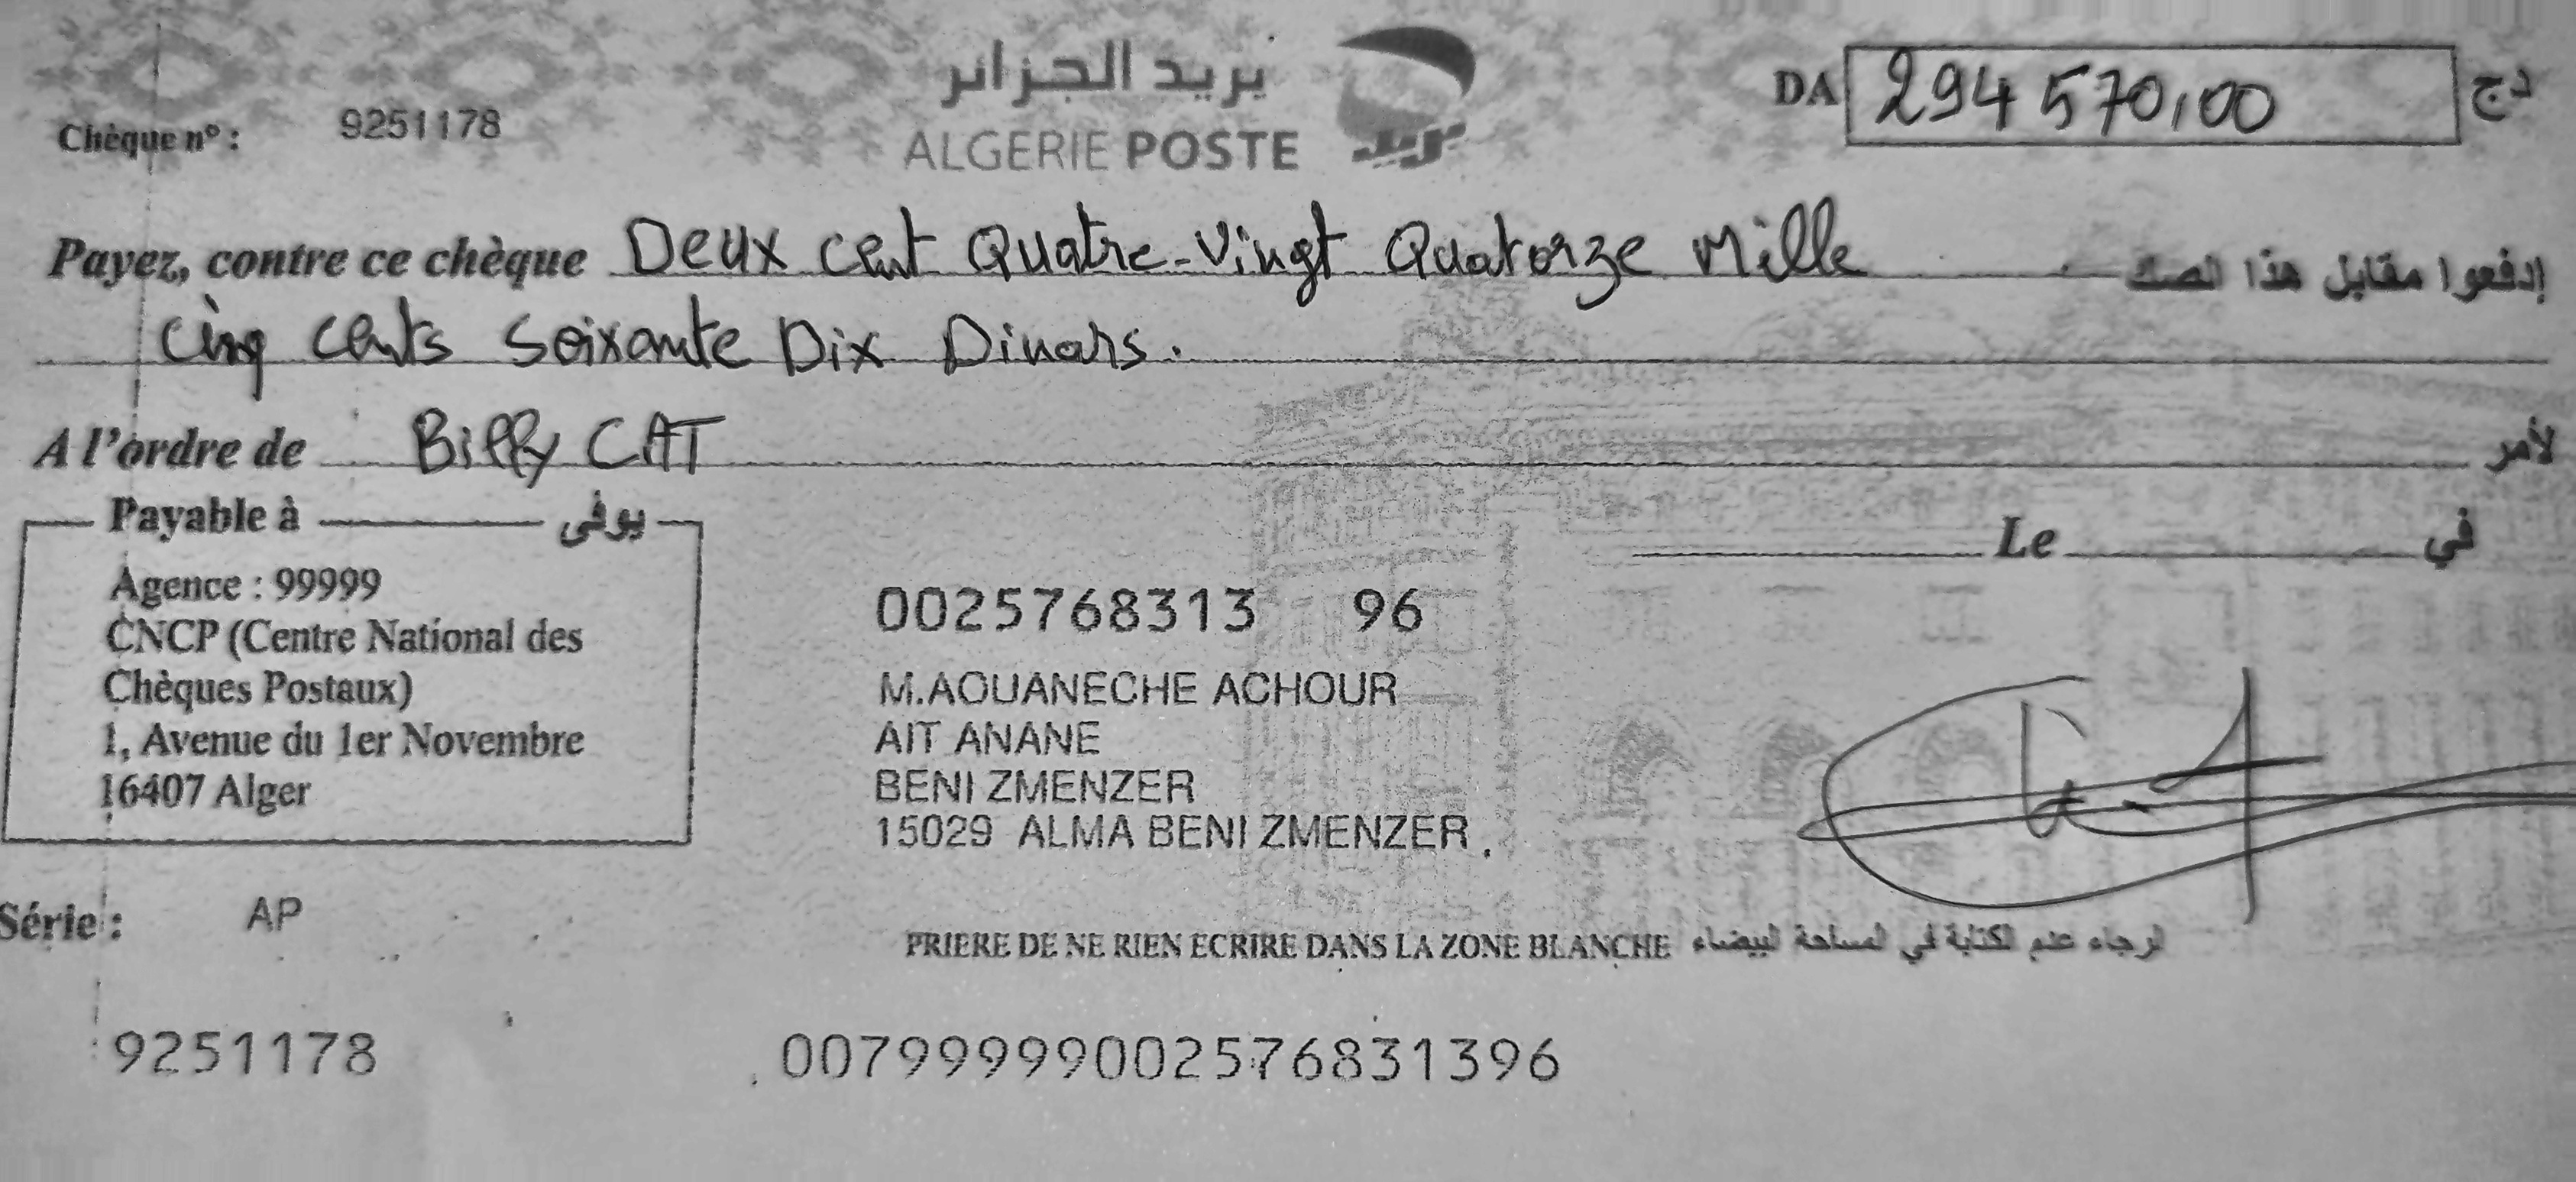 بريد الجزائر
ALGERIE POSTE
بريد
Chèque n° : 9251178
DA 294 570,00 دج
Payez, contre ce chèque Deux cent Quatre-Vingt Quatorze Mille إدفعوا مقابل هذا الصك
Cinq cents Soixante Dix Dinars.
A l'ordre de Billy CAT لأمر
Payable à يوفى
Le في
Agence : 99999
CNCP (Centre National des
Chèques Postaux)
1, Avenue du 1er Novembre
16407 Alger
0025768313 96
M.AOUANECHE ACHOUR
AIT ANANE
BENI ZMENZER
15029 ALMA BENI ZMENZER
Série : AP
PRIERE DE NE RIEN ECRIRE DANS LA ZONE BLANCHE لرجاء عدم لكتابة في لمساحة لبيضاء
9251178 00799999002576831396